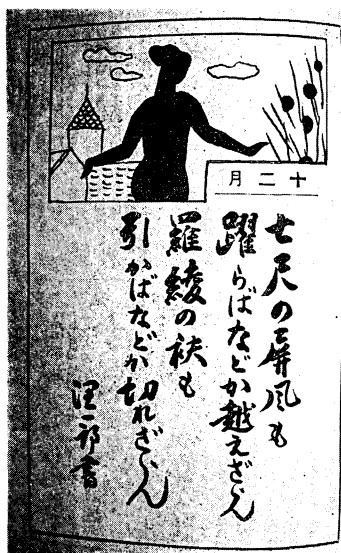 十二月
七尺の屏風も
躍らばなどか越えざらん
羅綾の袂も
引かばなどか切れざらん
潤一郎書